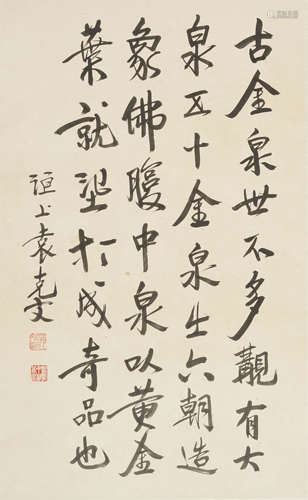 古金泉世不多覯有大
泉五十金泉出六朝造
象佛腹中泉以黃金
葉就打成奇品也
洹上袁克文